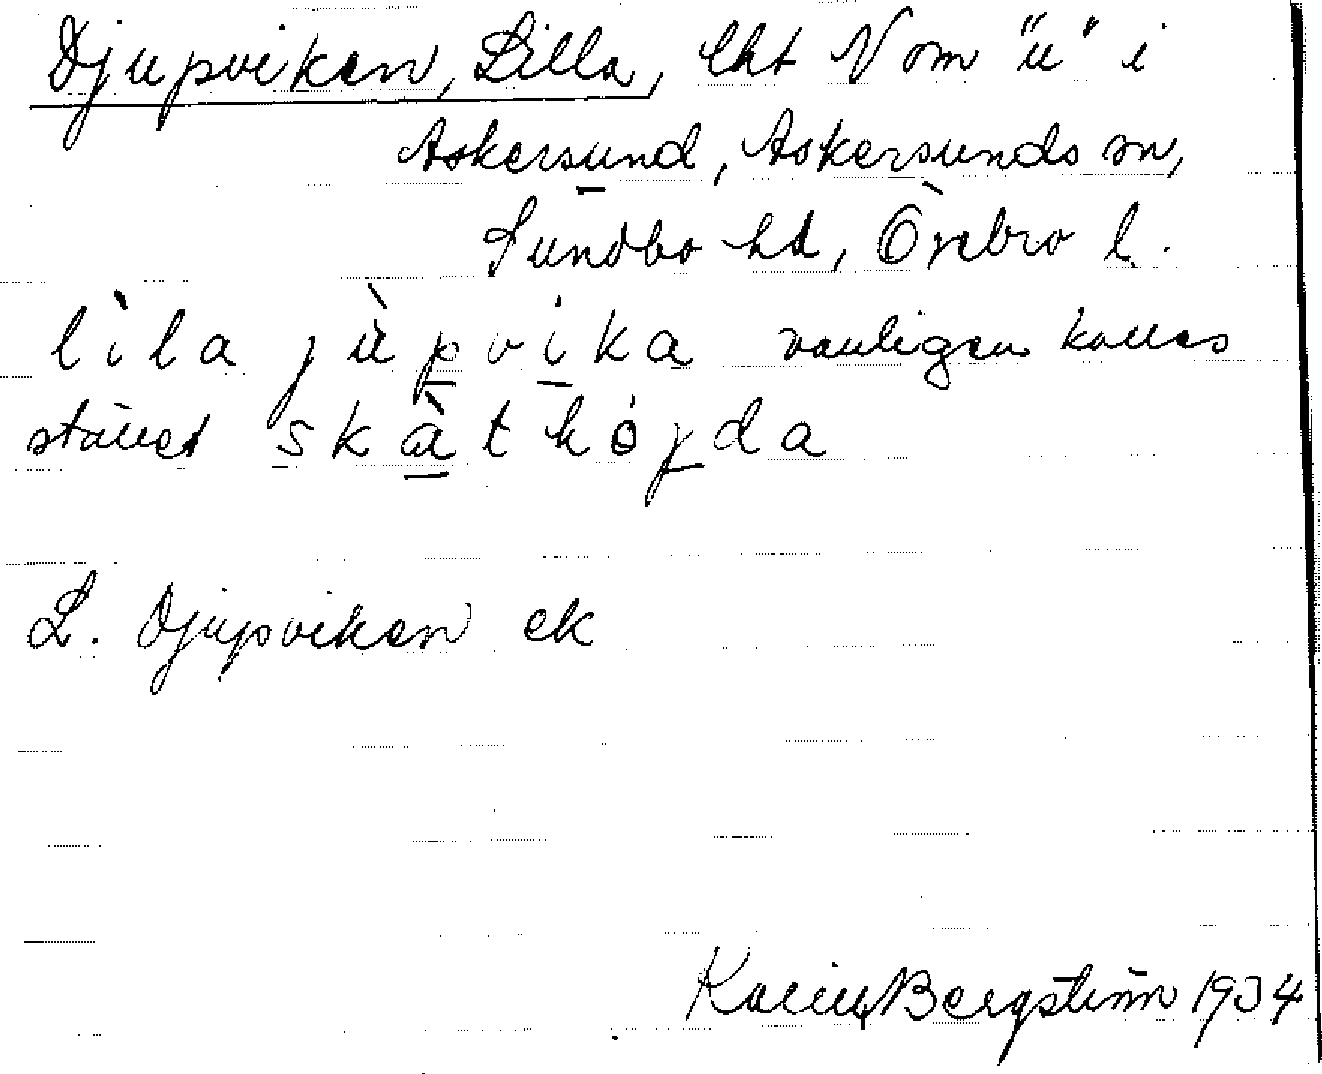 Djupviken, Lilla, lht N om "u" i
Askersund, Askersunds sn,
Sundbo hd, Örebro l.
lìla jùpvika vanligen kallas
stället skàthöjda
L. Djupviken ek
Karin Bergström 1934